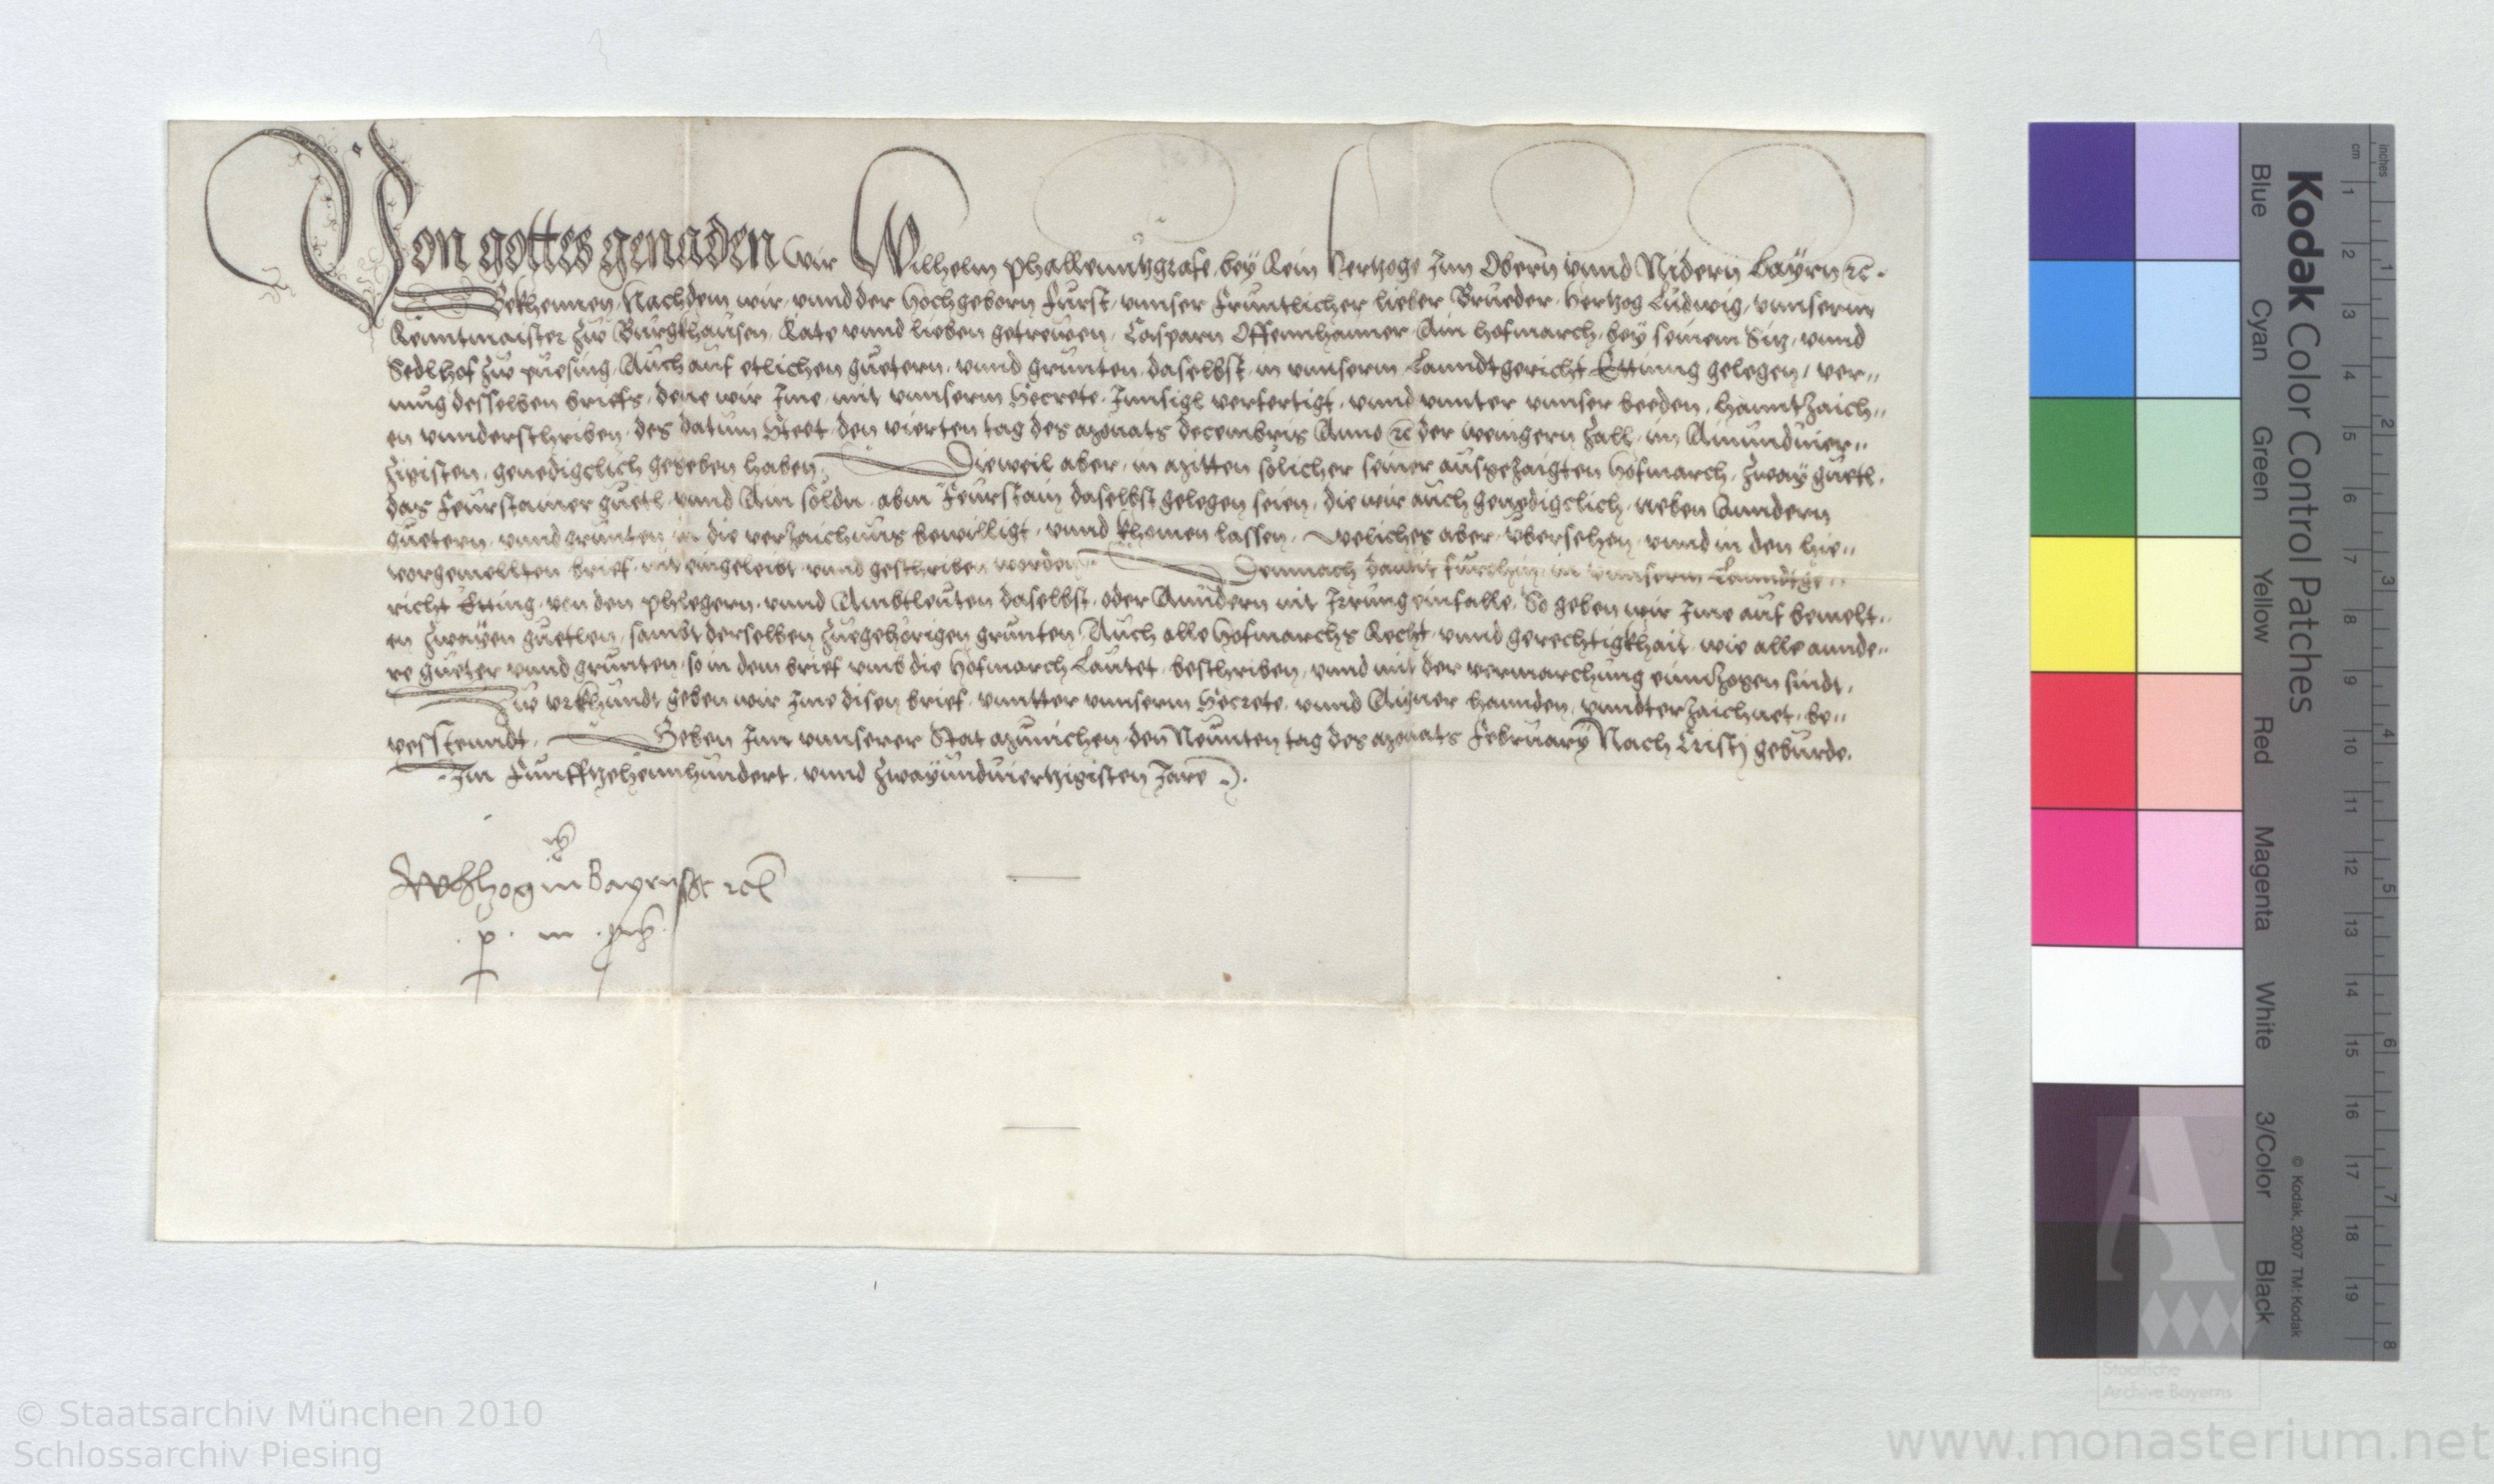 Von gottes genaden wir Wilhelm phallenntzgrafe bey Rein hertzoge Inn Obern unnd Nidern Bayrn ꝛc.
Bekhennen, Nachdem wir, unnd der hochgeborn Fürst, unnser fruntlicher lieber Brueder, Hertzog Ludwig, unnserm
Renntmaister zw Burgkhausen, Rate unnd lieben getrewen, Casparn Offennhaimer Ain hofmarch, bey seinem Siz, unnd
Sedlhof zw puesing, Auch auf etlichen guetern, unnd grunten, daselbst, in unnserm Lanndtgericht Ettinng gelegen, ver„
mug desselben briefs, dene wir Ime, mit unnserm Secrete, Innsigl verfertigt, unnd unnter unnser beeden, hanntzaich„
en unnderschriben, des datum Steet, den vierten tag des monats decembris Anno ꝛc der wenigern zall, im Ainundvier„
zigisten, genedigclich gegeben haben, Dieweil aber, in mitten solicher seiner ausgezaigten hofmarch, zway guetl,
das Feurstainer guetl, unnd Ain söldn, abm Feurstain daselbst gelegen seien, die wir auch genedigclich, neben Anndern
guetern, unnd grunten in die verzaichnus bewilligt, unnd khomen lassen, weliches aber, übersehen, unnd in den hie„
vorgemellten brief, nit eingeleibt, unnd geschriben worden, Demnach damit furohin, in unnserm Lanndtge„
richt Etting, von den phlegern, unnd Ambtleuten daselbst, oder Anndern nit Irrung einfalle, So geben wir Ime auf bemelt„
en zwayen guetlen, sambt derselben zuegehörigen grunten, Auch alle hofmarchs Recht, unnd gerechtigkhait, wie alle annde„
re gueter unnd grunten, so in dem brief umb die hofmarch Lautet, beschriben, unnd mit der vermarchung einzogen sindt,
Zw urkhundt geben wir Ime disen brief, unntter unnserm Secrete, unnd Aigner hannden, unndterzaichnet, be„
vesstenndt, Geben Inn unnserer Stat munichen, den Neunten tag des monats February Nach Cristi geburde,
Im Funfftzehennhundert, unnd zwayundviertzigisten Jare
W hzog in Bayrn ꝛc
p. m. pp.
Kodak Color Control Patches
Blue Cyan Green Yellow Red Magenta White 3/Color Black
© Kodak, 2007 TM: Kodak
cm 1 2 3 4 5 6 7 8 9 10 11 12 13 14 15 16 17 18 19
inches 1 2 3 4 5 6 7 8
Staatliche
Archive Bayerns
© Staatsarchiv München 2010
Schlossarchiv Piesing
www.monasterium.net